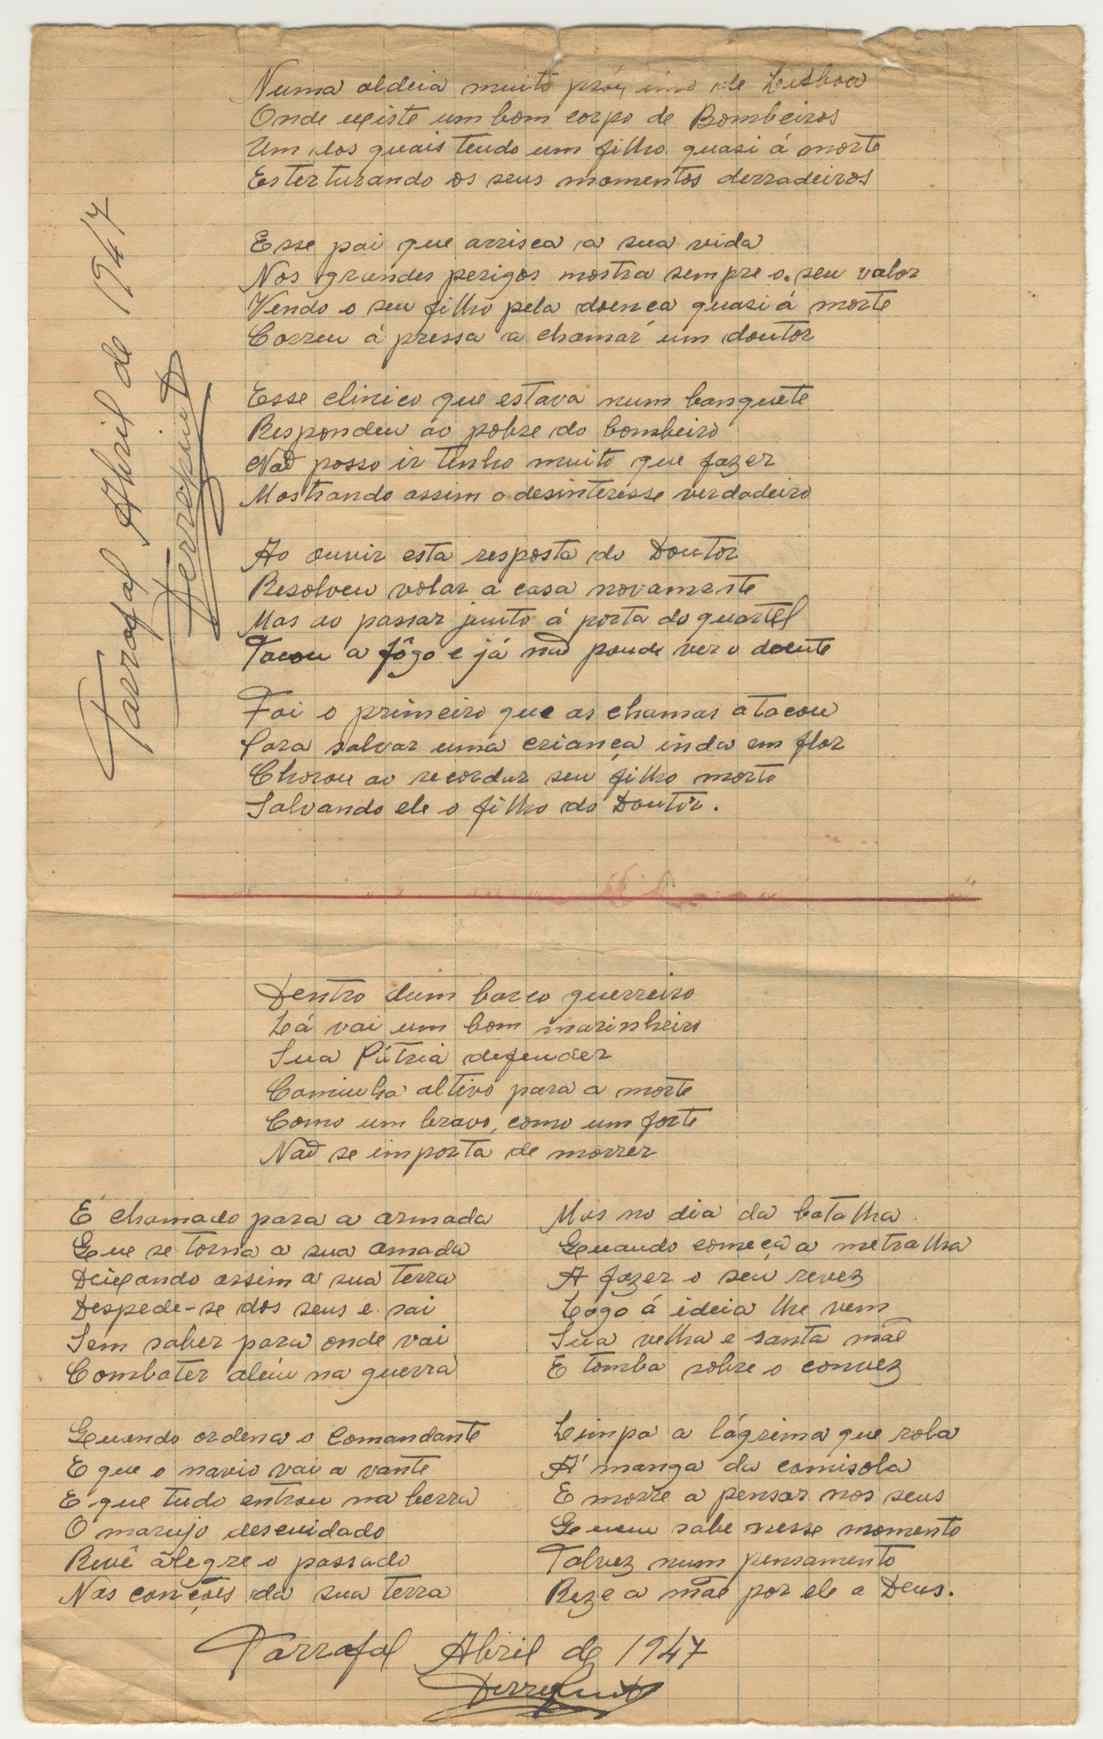 Numa aldeia muito próxima de Lisboa
Onde existe um bom corpo de Bombeiros
Um dos quais tendo um filho quasi á morte
Esterturando os seus momentos derradeiros
Esse pai que arrisca a sua vida
Nos grandes perigos mostra sempre o seu valor
Vendo o seu filho pela doença quasi á morte
Correu á pressa a chamar um doutor
Esse clinico que estava num banquete
Respondeu ao pobre do bombeiro
Não posso ir tenho muito que fazer
Mostrando assim o desinterésse verdadeiro
Ao ouvir esta resposta do Doutor
Resolveu voltar a casa novamente
Mas ao passar junto á porta do quartel
Tocou a fôgo e já não poude ver o doente
Foi o primeiro que as chamas atacou
Para salvar uma criança inda em flor
Chorou ao recordar seu filho morto
Salvando ele o filho do Doutor.
Tarrafal Abril de 1947
Dentro dum barco guerreiro
Lá vai um bom marinheiro
Sua Pátria defender
Caminha altivo para a morte
Como um bravo, como um forte
Não se importa de morrer
É chamado para a armada
Que se torna a sua amada
Deixando assim a sua terra
Despede-se dos seus e sai
Sem saber para onde vai
Combater além na guerra
Quando ordena o comandante
E que o navio vai a vante
E que tudo entrou na berra
O marujo descuidado
Revê alegre o passado
Nas canções da sua terra
Mas no dia da batalha
Quando começa a metralha
A fazer o seu revez
Logo á ideia lhe vem
Sua velha e santa mãe
E tomba sobre o convez
Limpa a lágrima que rola
Á manga da camisola
E morre a pensar nos seus
Quem sabe nesse momento
Talvez num pensamento
Reze a mãe por ele a Deus.
Tarrafal Abril de 1947